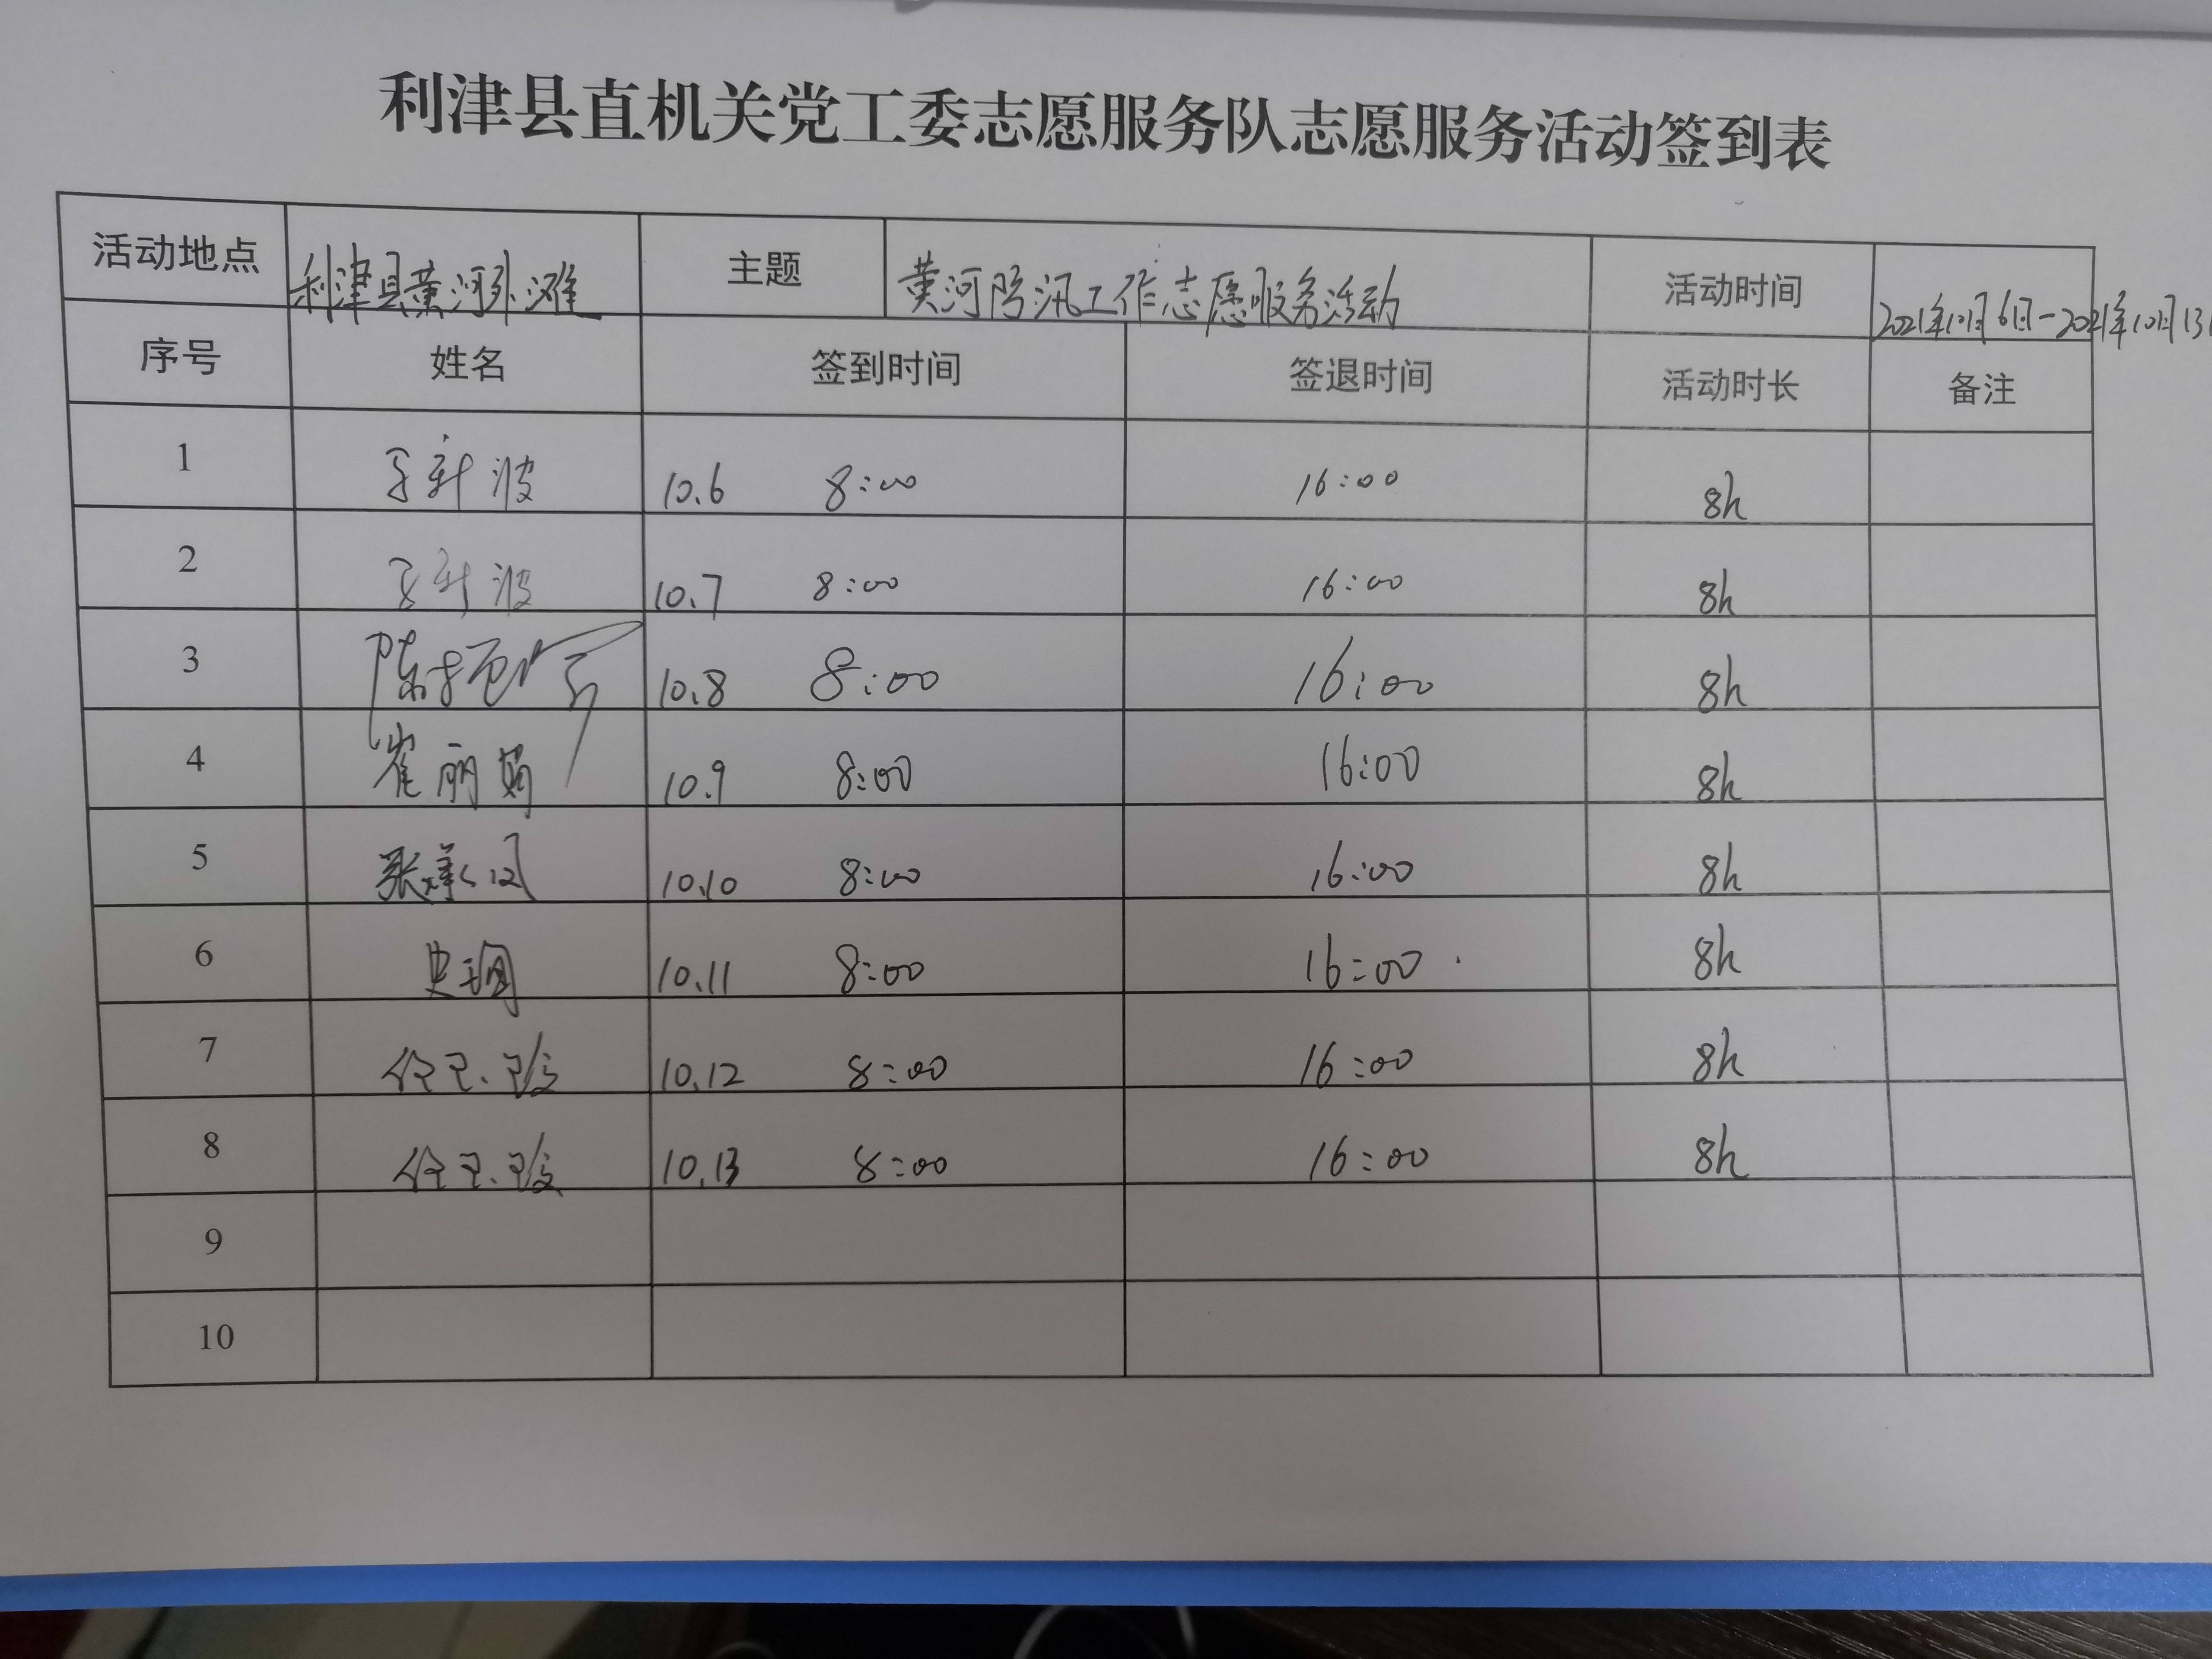 利津县直机关党工委志愿服务队志愿服务活动签到表
活动地点 利津县黄河外滩 主题 黄河防汛工作志愿服务活动 活动时间 2021年10月6日-2021年10月13
序号 姓名 签到时间 签退时间 活动时长 备注
1 新波 10.6 8:00 16:00 8h
2 新波 10.7 8:00 16:00 8h
3 陈 10.8 8:00 16:00 8h
4 崔丽娟 10.9 8:00 16:00 8h
5 张 10.10 8:00 16:00 8h
6 史 10.11 8:00 16:00 8h
7 任 10.12 8:00 16:00 8h
8 任 10.13 8:00 16:00 8h
9
10